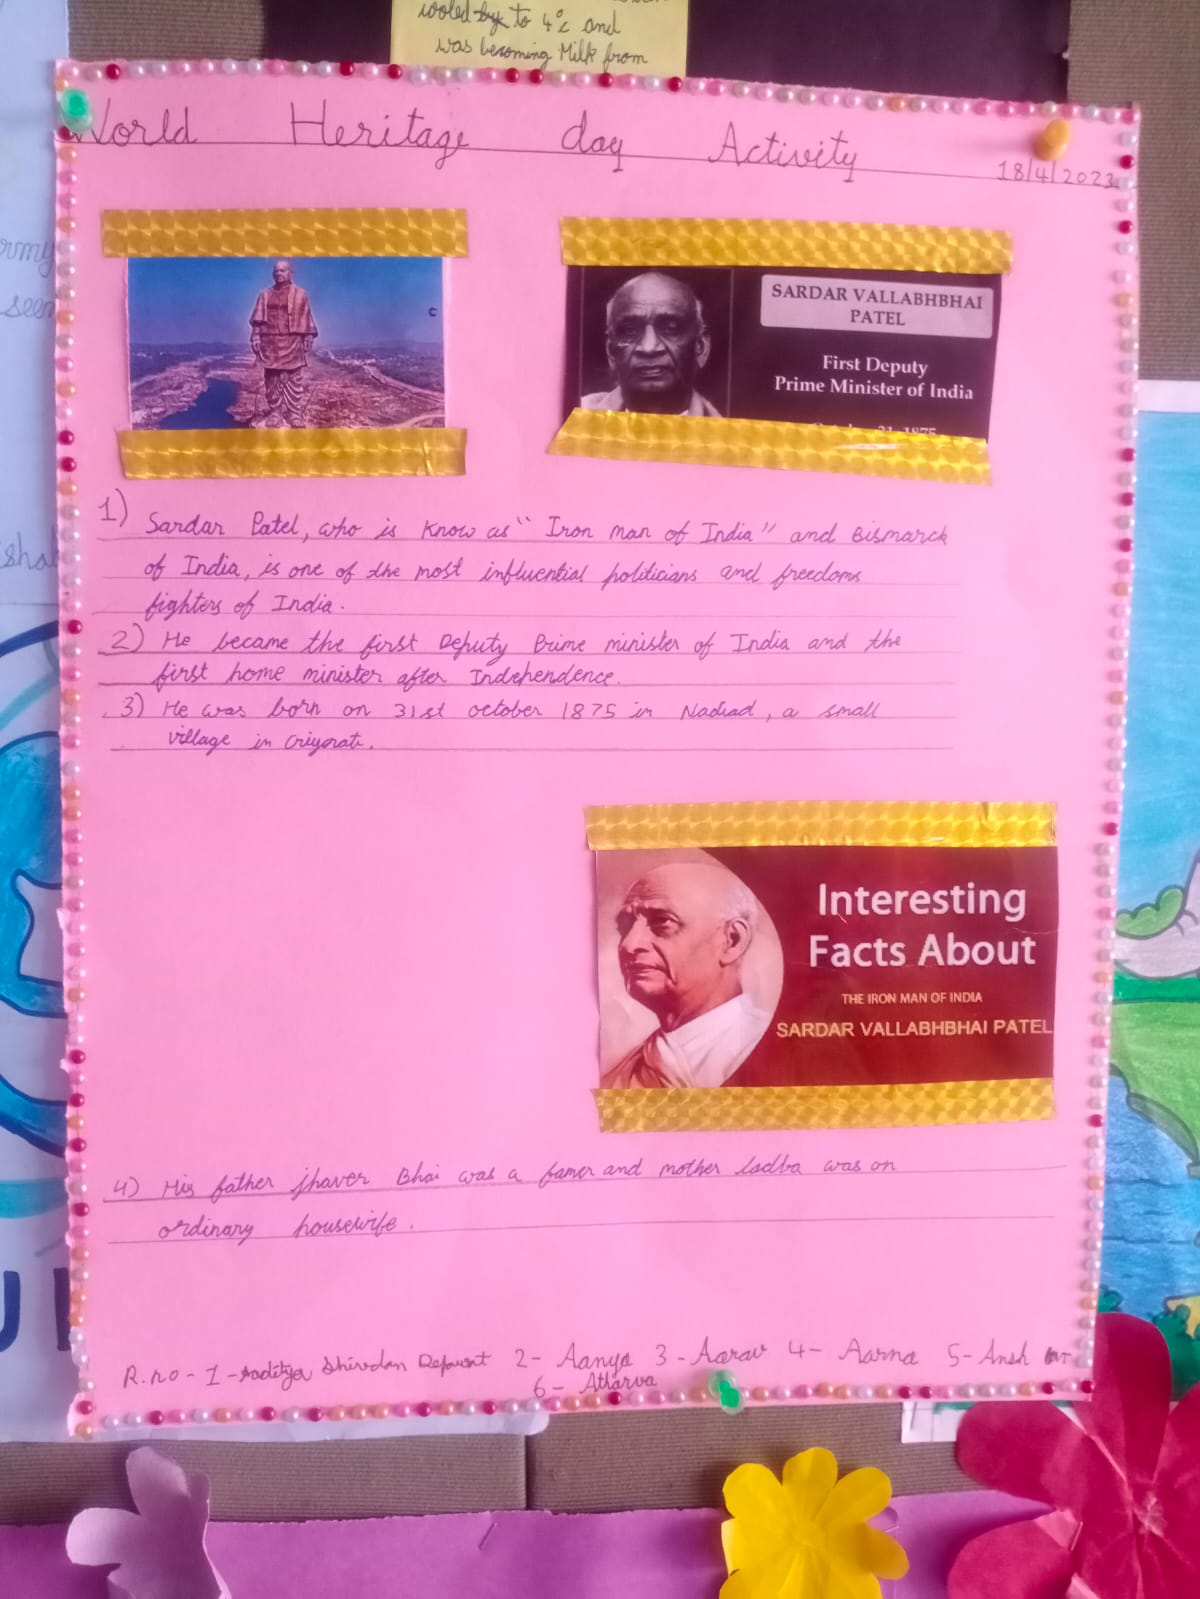 cooled by to 4°c and
was becoming Milk from
World Heritage day Activity
18/4/2023
C
SARDAR VALLABHBHAI
PATEL
First Deputy
Prime Minister of India
1) Sardar Patel, who is know as "Iron man of India" and Bismarck
of India, is one of the most influential politicians and freedoms
fighters of India.
2) He became the first Deputy Prime minister of India and the
first home minister after Independence.
3) He was born on 31st october 1875 in Nadiad, a small
village in
Interesting
Facts About
THE IRON MAN OF INDIA
SARDAR VALLABHBHAI PATEL
4) His father jhaver Bhai was a famer and mother ladba was on
ordinary housewife.
R.no - 1 - Aaditya Shivdan 2 - Aanya 3 - Aarav 4 - Aarna 5 - Ansh
6 - Atharva